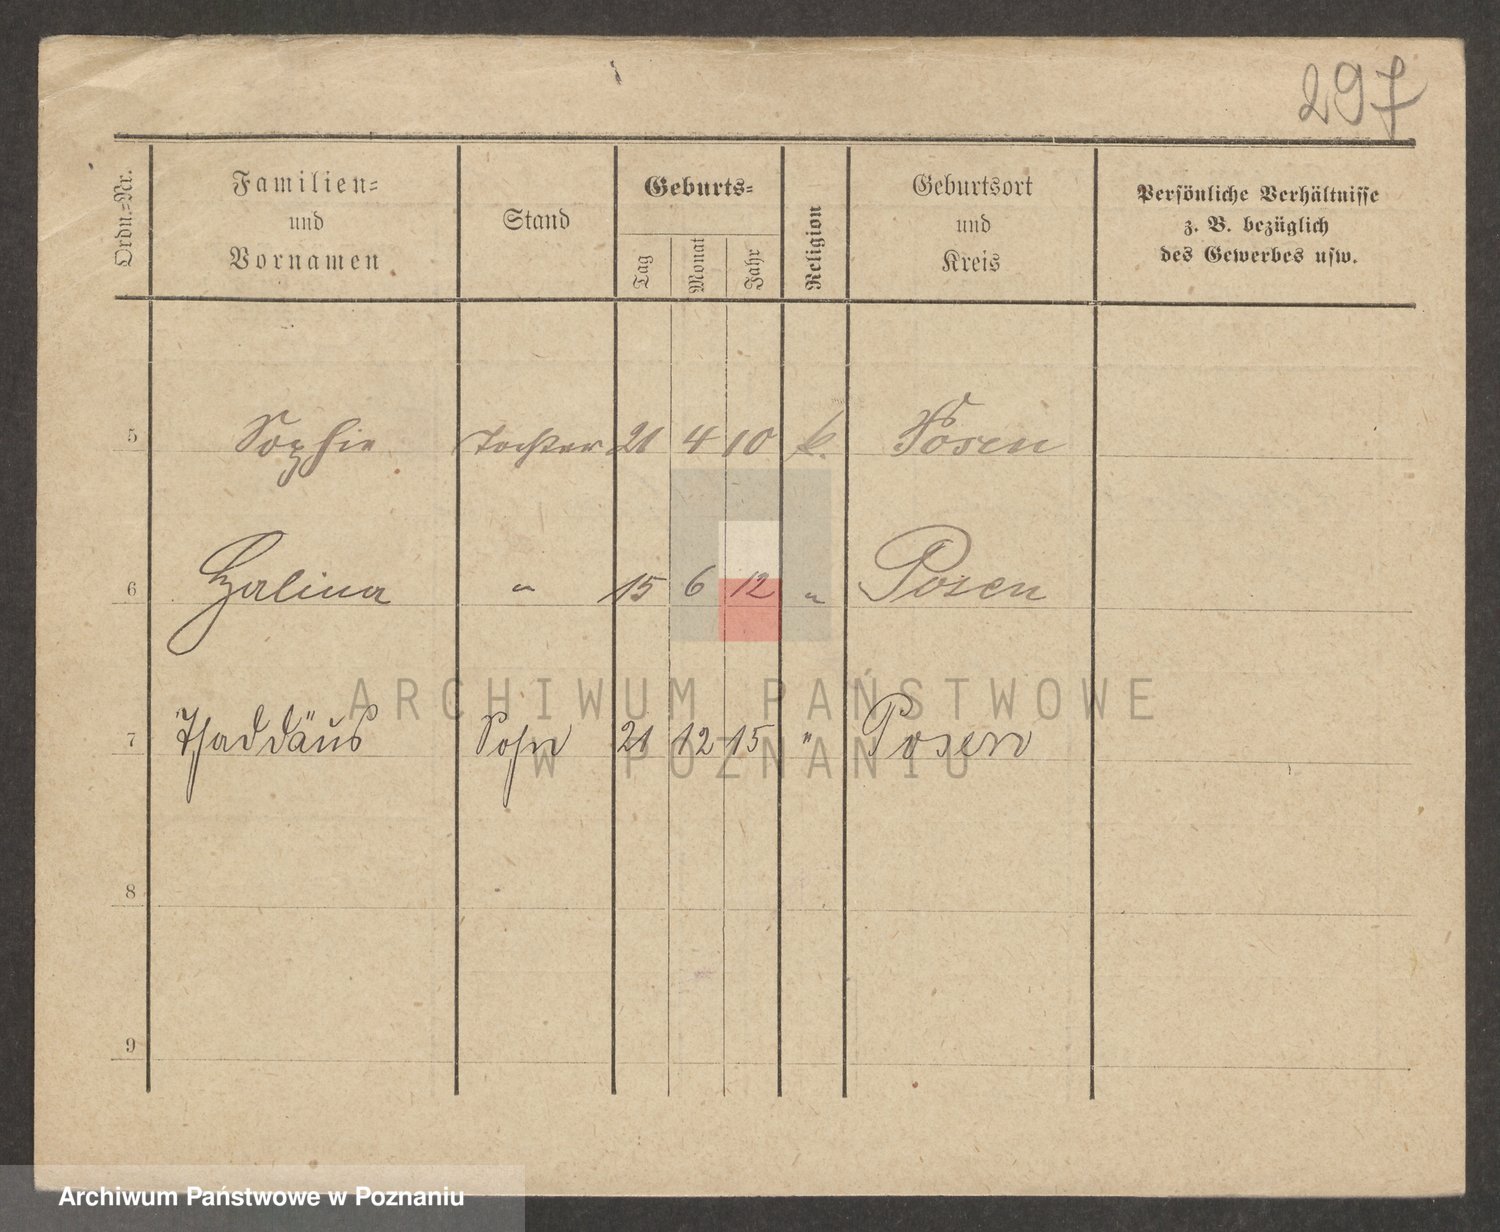 297
Ordn.-Nr. Familien- und Vornamen Stand Geburts- Tag Monat Jahr Religion Geburtsort und Kreis Persönliche Verhältnisse z. B. bezüglich des Gewerbes usw.
5 Sophie Tochter 21 4 10 k. Posen
6 Halina " 15 6 12 " Posen
7 Thaddäus Sohn 21 12 15 " Posen
8
9
ARCHIWUM PAŃSTWOWE
W POZNANIU
Archiwum Państwowe w Poznaniu